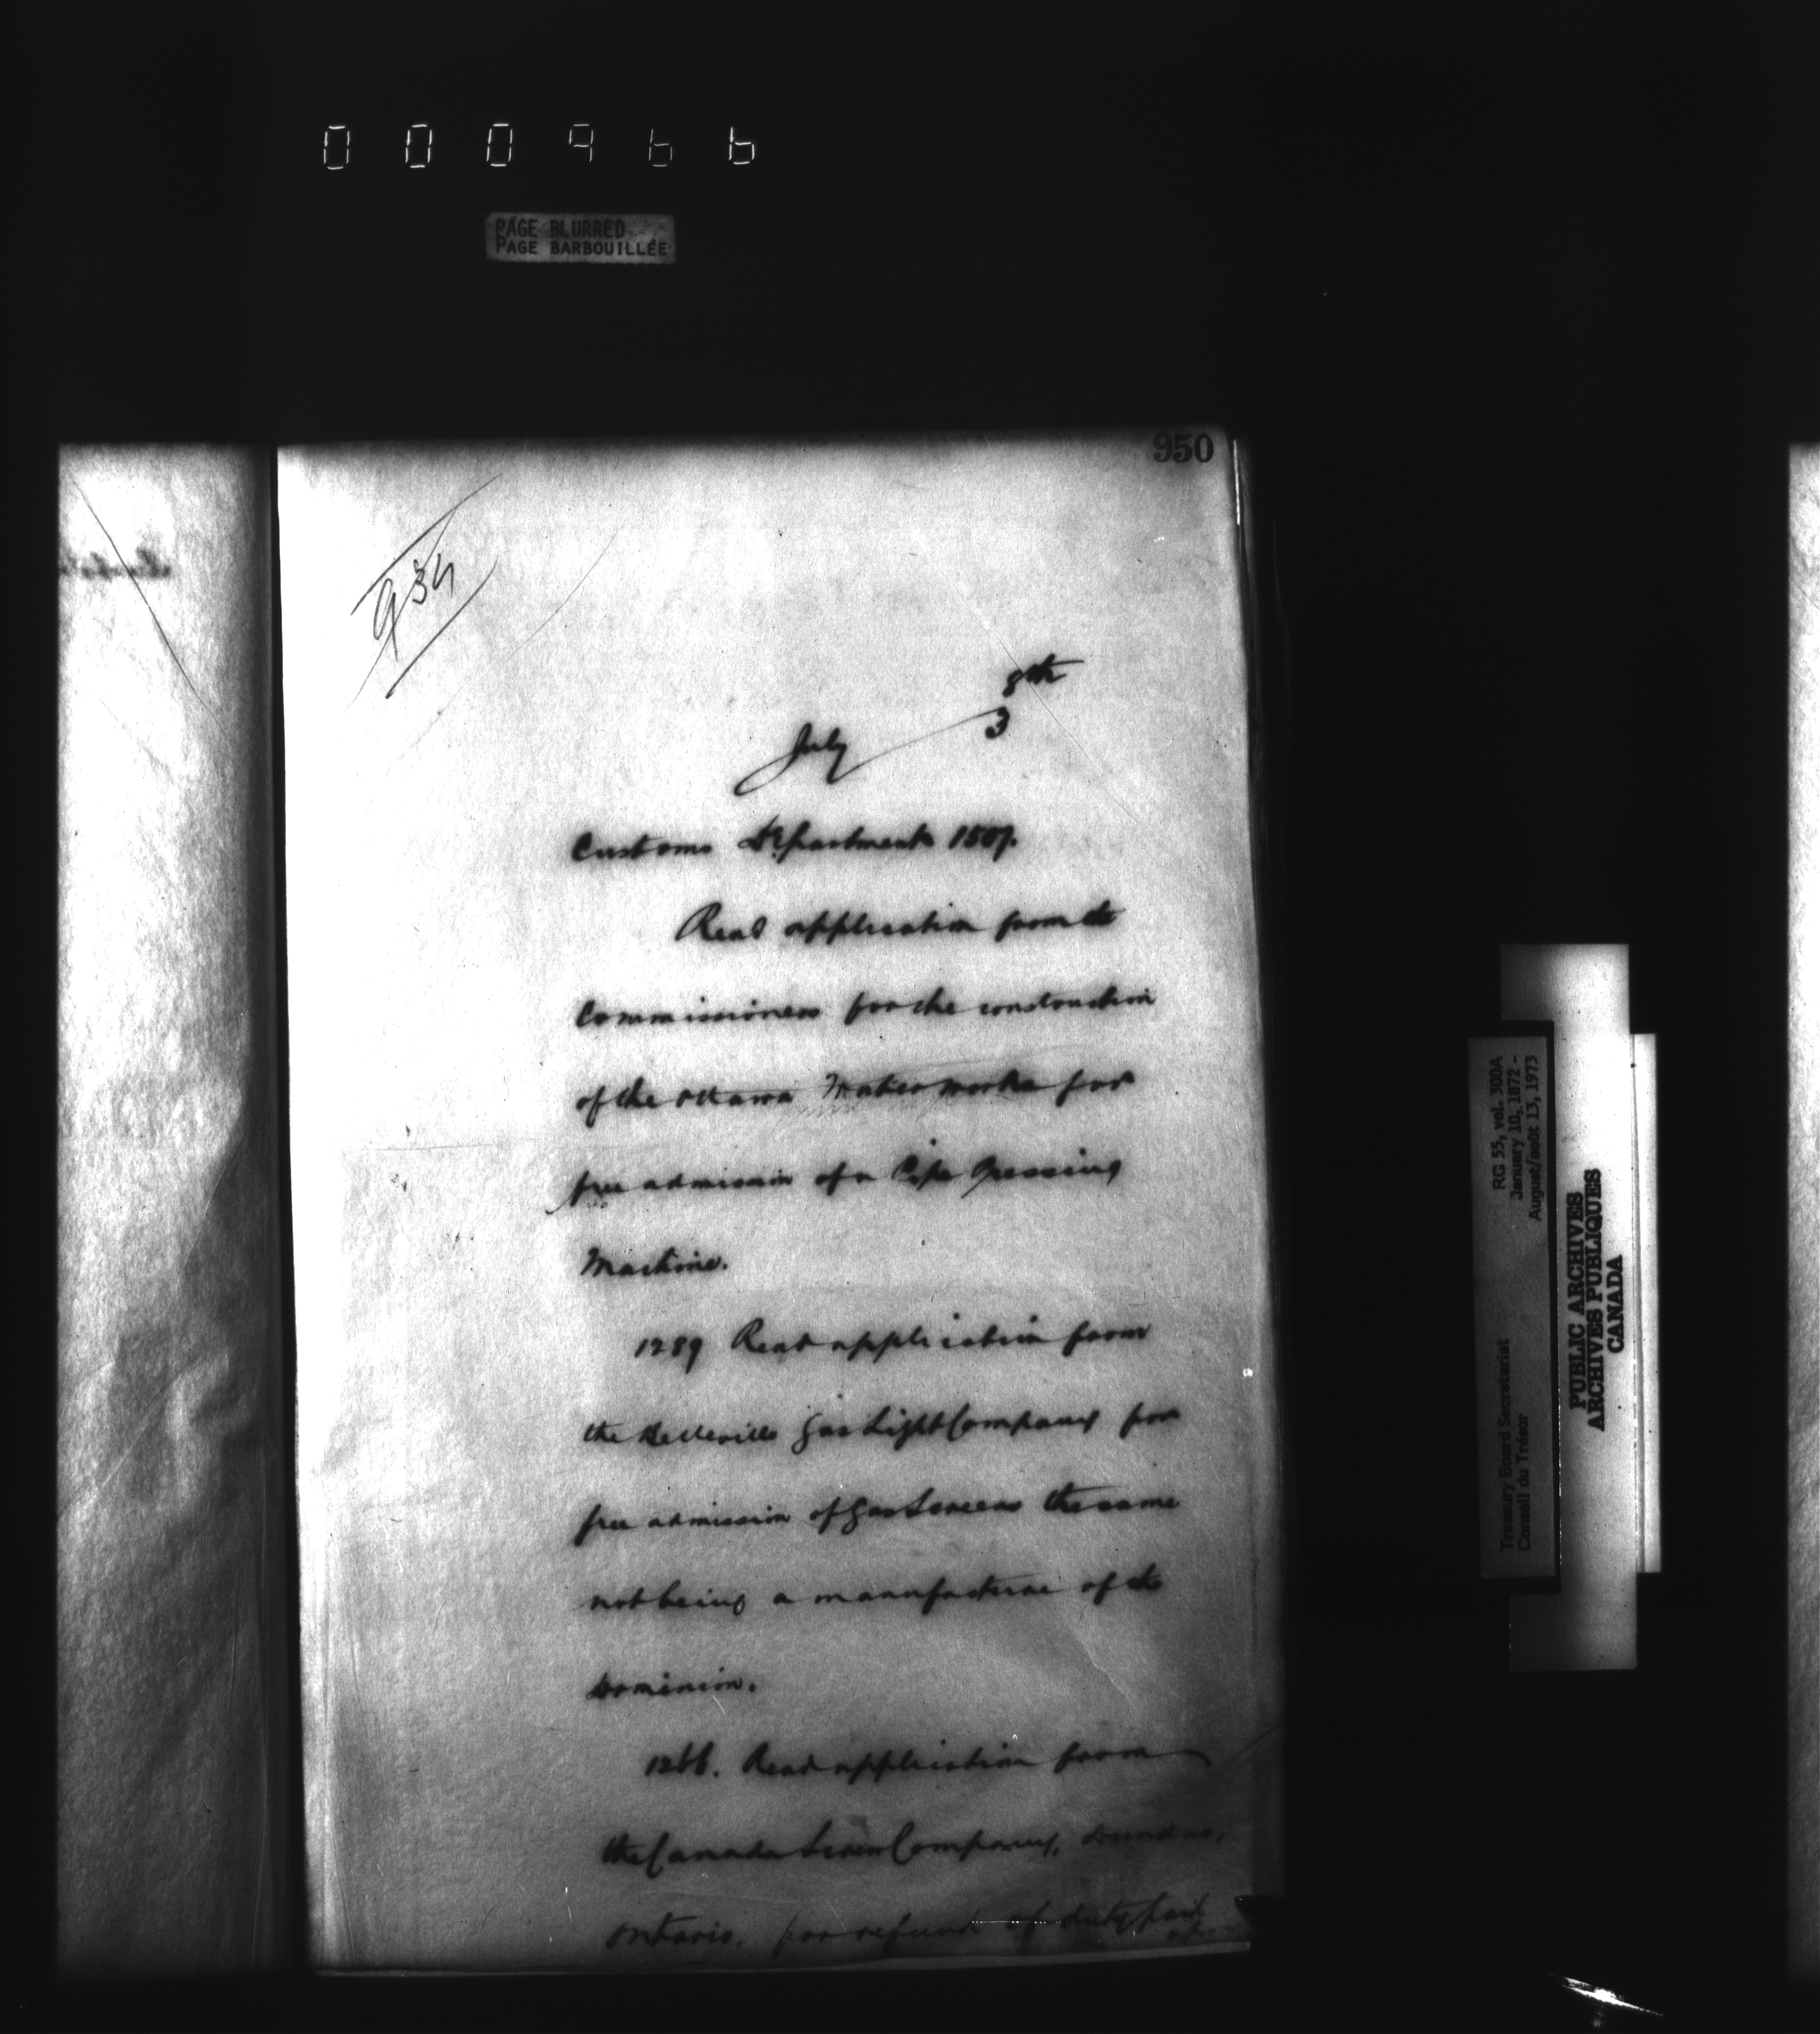 000966
PAGE BLURRED
PAGE BARBOUILLÉE
950
934
8th
July 3
Customs Department 1507.
Read application from the
Commissioners for the construction
of the Ottawa Water works for
free admission of a Pipe Pressing
Machine.
1289 Read application from
the Belleville Gas Light Company for
free admission of Gas Screens the same
not being a manufacture of the
Dominion.
1266. Read application from
the Canada Screw Company, Dundas,
Ontario, for refund of duty paid
RG 55, vol. 300A
January 10, 1872 -
August/août 13, 1973
Treasury Board Secretariat
Conseil du Trésor
PUBLIC ARCHIVES
ARCHIVES PUBLIQUES
CANADA